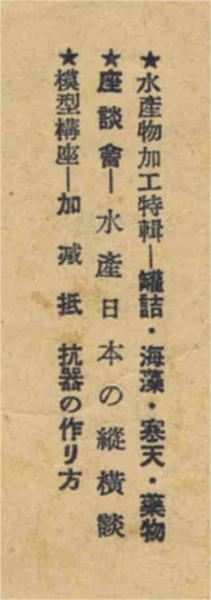 ★水產物加工特輯—罐詰・海藻・寒天・藥物
★座談會—水產日本の縱橫談
★模型講座—加減抵抗器の作リ方